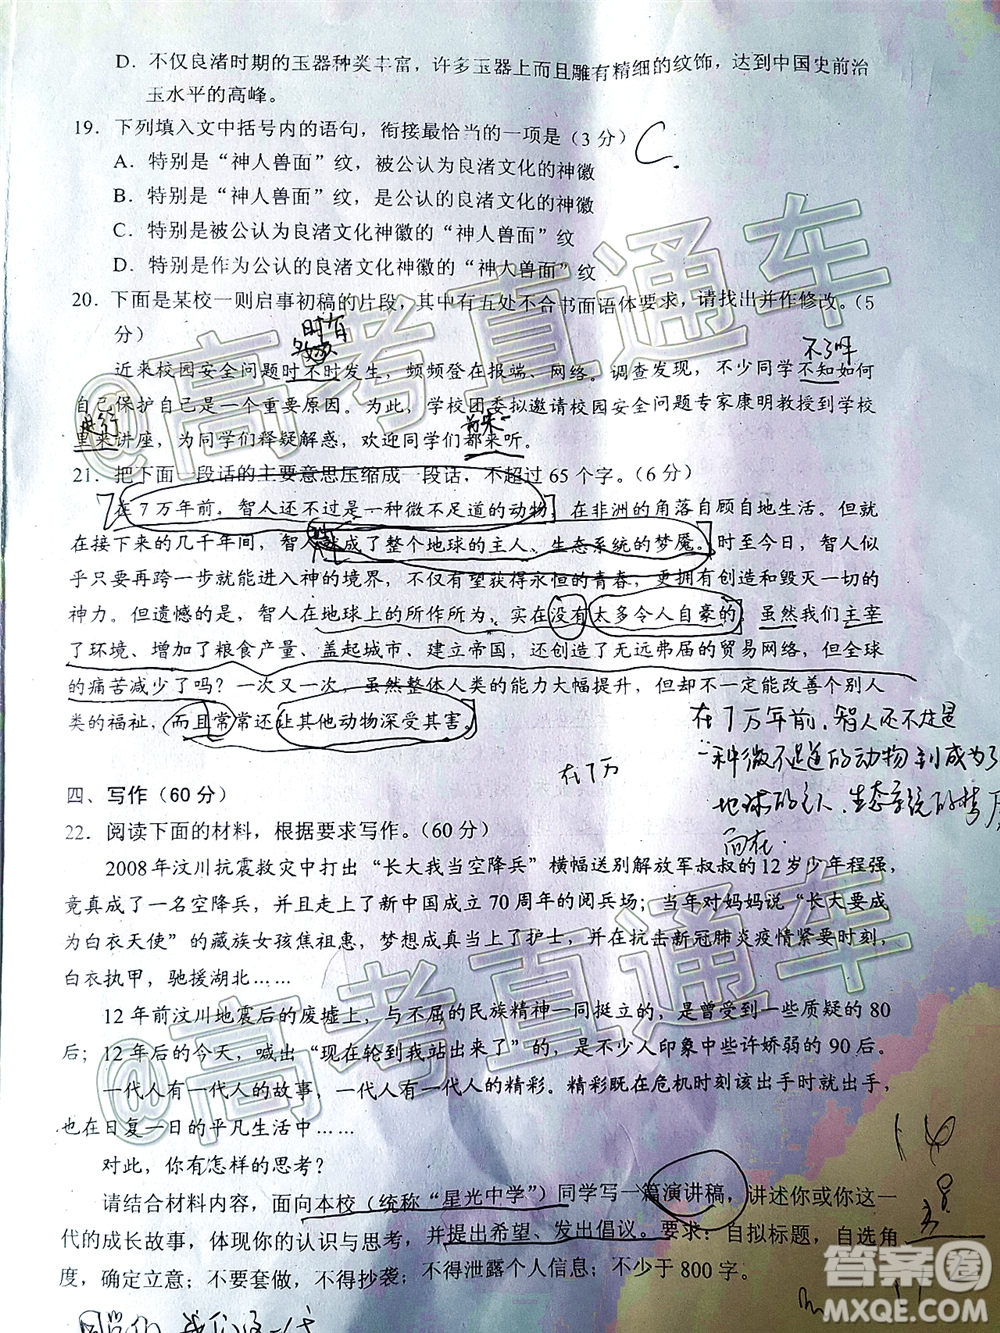 D. 不仅良渚时期的玉器种类丰富，许多玉器上而且雕有精细的纹饰，达到中国史前治
玉水平的高峰。
19. 下列填入文中括号内的语句，衔接最恰当的一项是（3 分）
C.
A. 特别是“神人兽面”纹，被公认为良渚文化的神徽
B. 特别是“神人兽面”纹，是公认的良渚文化的神徽
C. 特别是被公认为良渚文化神徽的“神人兽面”纹
D. 特别是作为公认的良渚文化神徽的“神人兽面”纹
20. 下面是某校一则启事初稿的片段，其中有五处不合书面语体要求，请找出并作修改。（5
分）
时有
近来校园安全问题时不时发生，频频登在报端、网络。调查发现，不少同学不知如何
自己保护自己是一个重要原因。为此，学校团委拟邀请校园安全问题专家康明教授到学校
里来讲座，为同学们释疑解惑，欢迎同学们都来听。
21. 把下面一段话的主要意思压缩成一段话，不超过 65 个字。（6 分）
在 7 万年前，智人还不过是一种微不足道的动物，在非洲的角落自顾自地生活。但就
在接下来的几千年间，智人就成了整个地球的主人、生态系统的梦魇。时至今日，智人似
乎只要再跨一步就能进入神的境界，不仅有望获得永恒的青春，更拥有创造和毁灭一切的
神力。但遗憾的是，智人在地球上的所作所为，实在没有太多令人自豪的。虽然我们主宰
了环境、增加了粮食产量、盖起城市、建立帝国，还创造了无远弗届的贸易网络，但全球
的痛苦减少了吗？一次又一次，虽然整体人类的能力大幅提升，但却不一定能改善个别人
类的福祉，而且常常还让其他动物深受其害。
在7万年前，智人还不过是
一种微不足道的动物到成为了
在7万
地球的主人、生态系统的梦
四、写作（60 分）
22. 阅读下面的材料，根据要求写作。（60 分）
2008 年汶川抗震救灾中打出“长大我当空降兵”横幅送别解放军叔叔的 12 岁少年程强，
竟真成了一名空降兵，并且走到了新中国成立 70 周年的阅兵场；当年对妈妈说“长大要成
为白衣天使”的藏族女孩焦祖惠，梦想成真当上了护士，并在抗击新冠肺炎疫情紧要时刻，
白衣执甲，驰援湖北……
12 年前汶川地震后的废墟上，与不屈的民族精神一同挺立的，是曾受到一些质疑的 80
后；12 年后的今天，喊出“现在轮到我站出来了”的，是不少人印象中些许娇弱的 90 后。
一代人有一代人的故事，一代人有一代人的精彩。精彩既在危机时刻该出手时就出手，
也在日复一日的平凡生活中……
对此，你有怎样的思考？
请结合材料内容，面向本校（统称“星光中学”）同学写一篇演讲稿，讲述你或你这一
代的成长故事，体现你的认识与思考，并提出希望、发出倡议。要求：自拟标题，自选角
度，确定立意；不要套做，不得抄袭；不得泄露个人信息；不少于 800 字。
同学们，我们这一代
@高考直通车
@高考直通车
答案圈
MXQE.COM